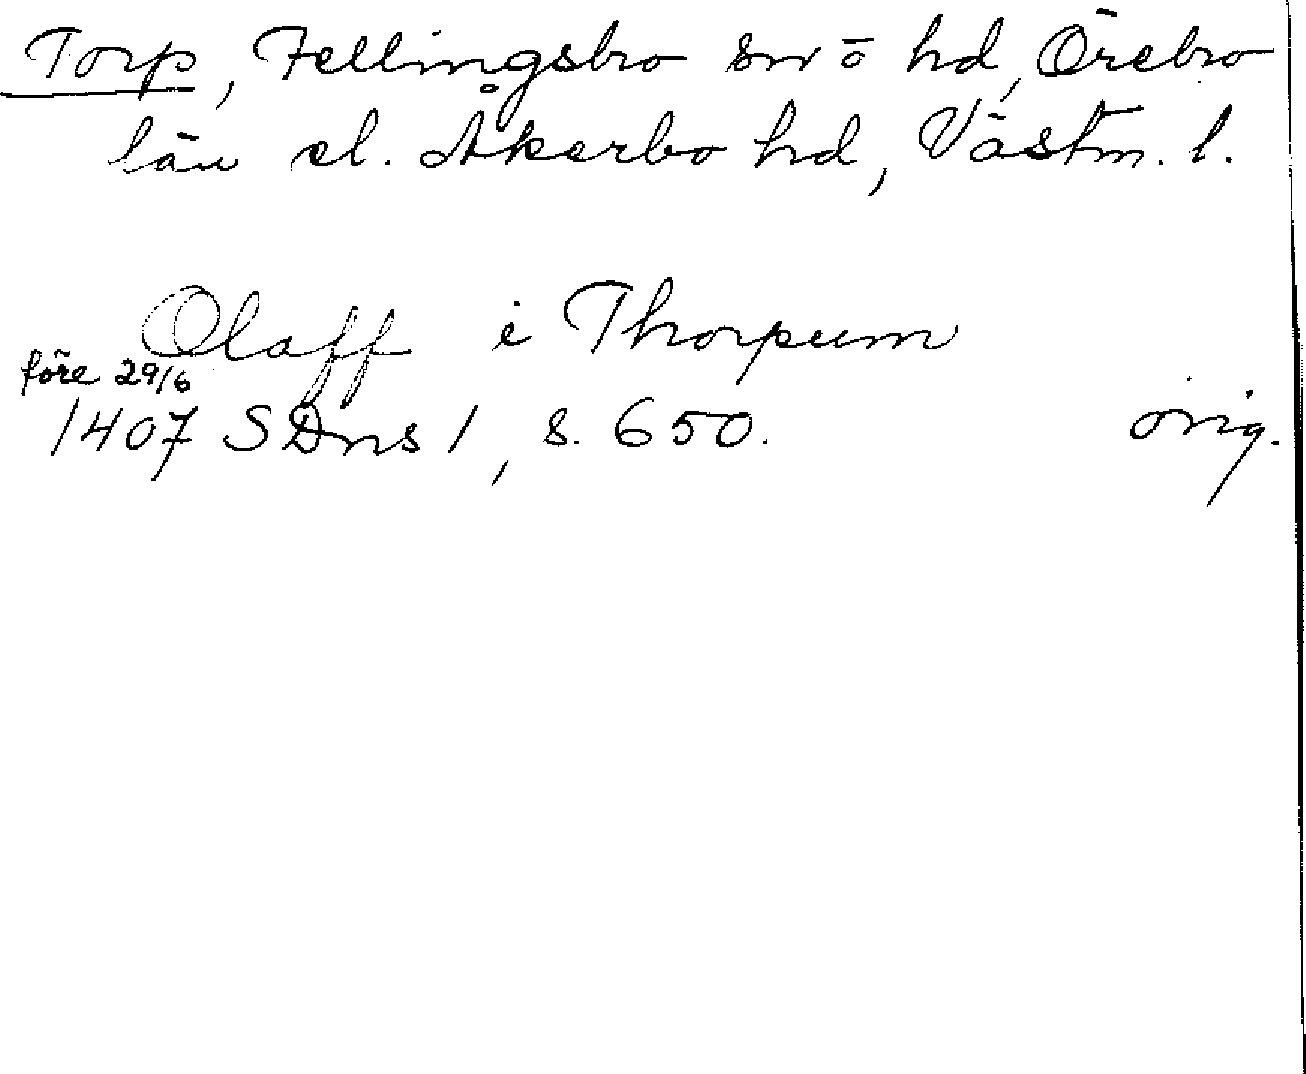 Torp, Fellingsbro sn o hd, Örebro
län el. Åkerbo hd, Västm. l.
Olaff i Thorpum
före 29/6
1407 SDns 1, s. 650. orig.